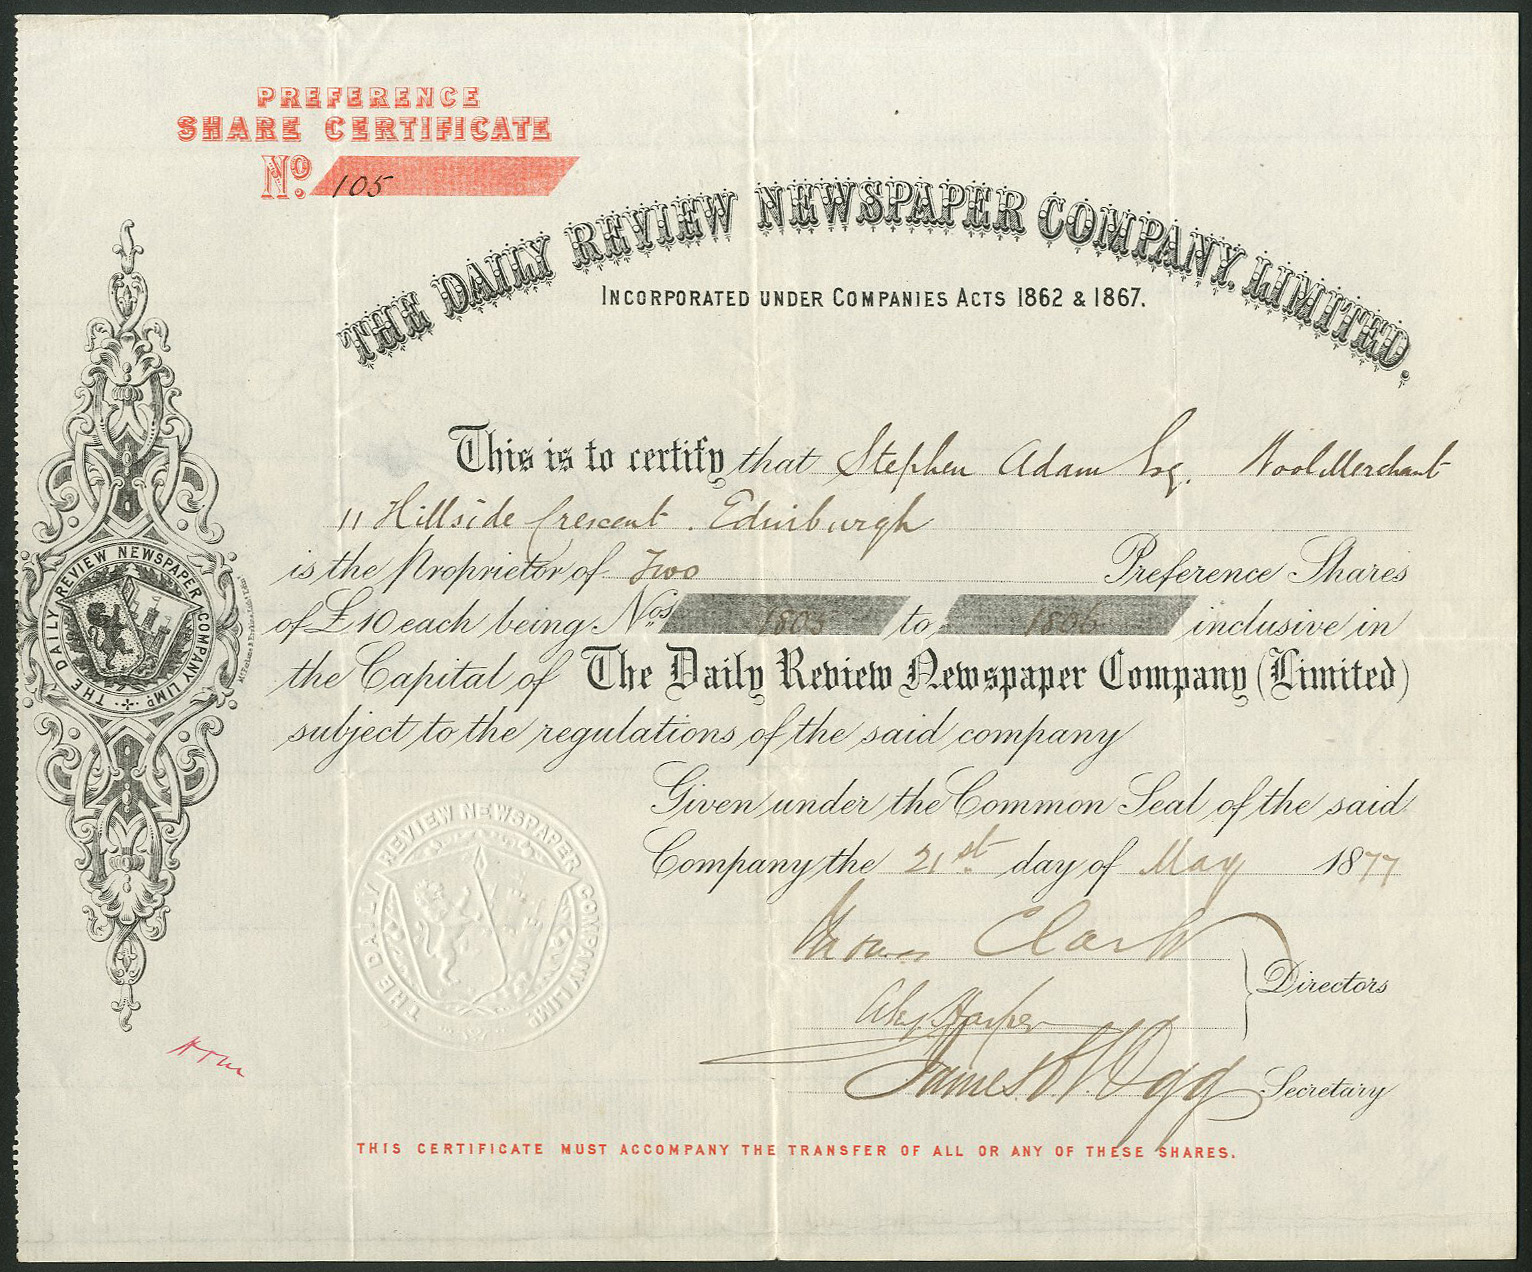 PREFERENCE
SHARE CERTIFICATE
No. 105
THE DAILY REVIEW NEWSPAPER COMPANY, LIMITED.
INCORPORATED UNDER COMPANIES ACTS 1862 & 1867.
This is to certify that Stephen Adam Esq. Wool Merchant
11 Hillside Crescent. Edinburgh
is the Proprietor of Two Preference Shares
of £10 each being Nos to inclusive in
the Capital of The Daily Review Newspaper Company (Limited)
subject to the regulations of the said company
Given under the Common Seal of the said
Company the 21st day of May 1877
Thomas Clark
Directors
Alex Harper
James Ogg Secretary
THIS CERTIFICATE MUST ACCOMPANY THE TRANSFER OF ALL OR ANY OF THESE SHARES.
THE DAILY REVIEW NEWSPAPER COMPANY LIMD
THE DAILY REVIEW NEWSPAPER COMPANY LIMD